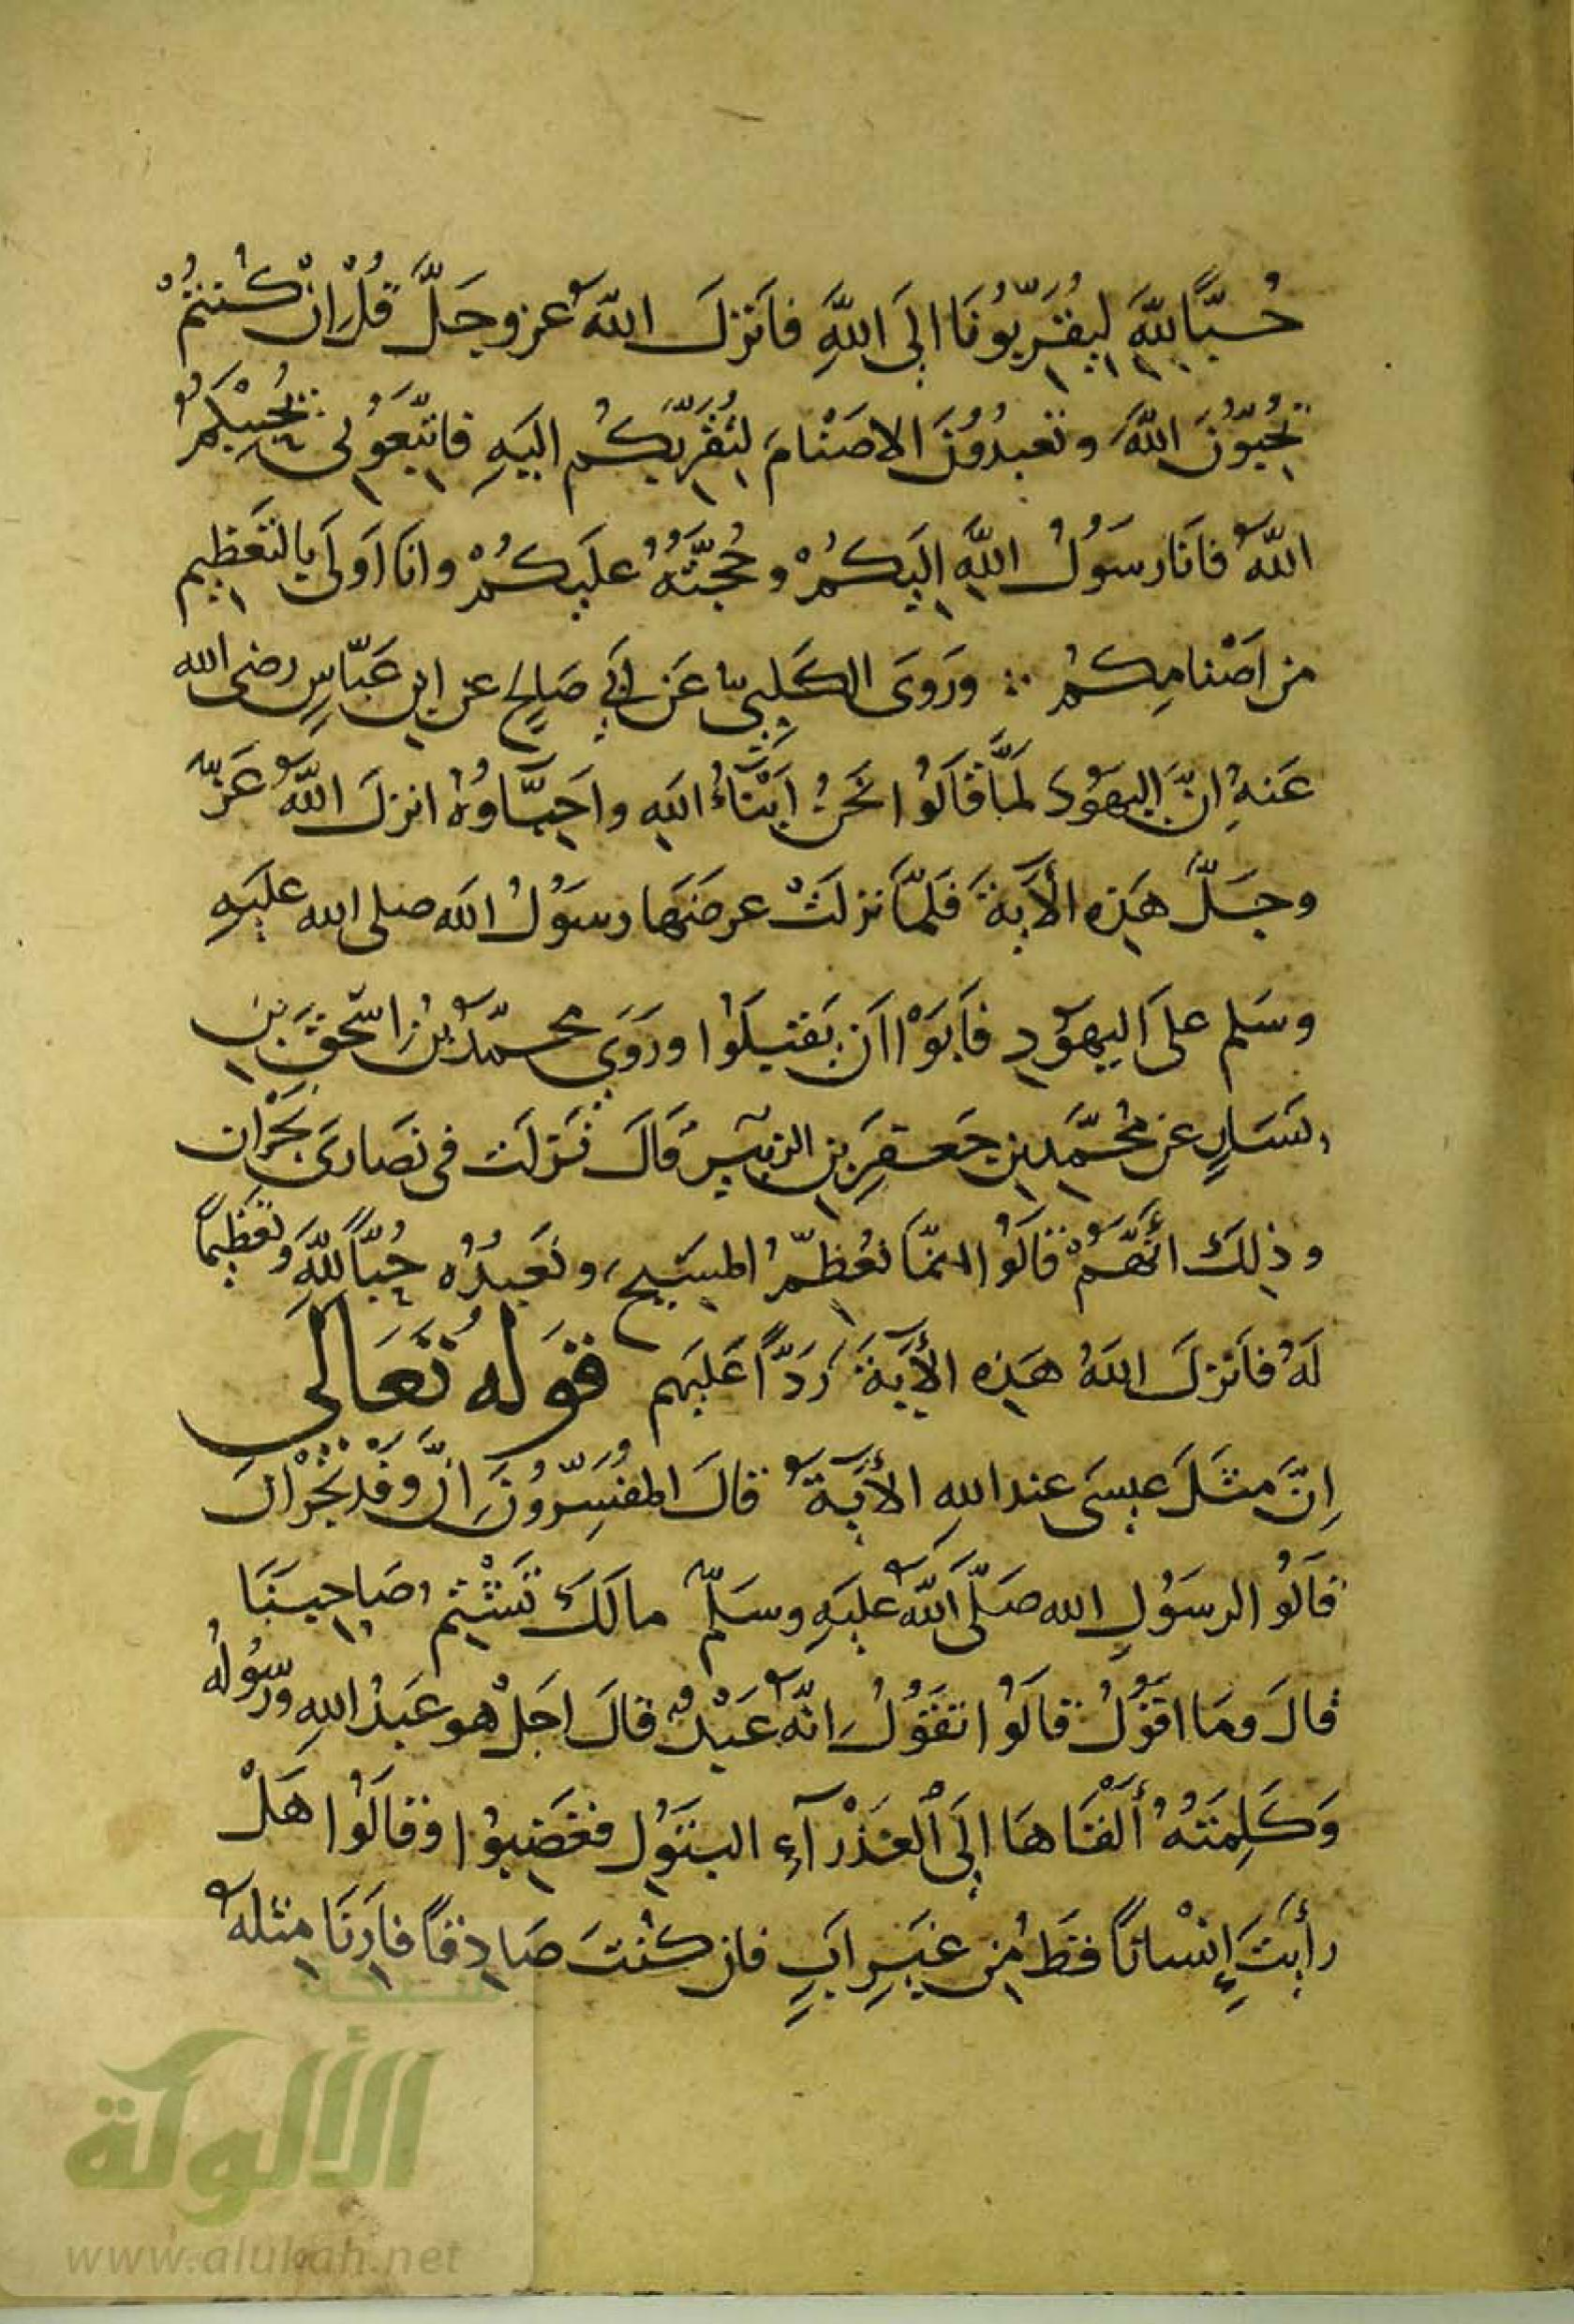 حُبًّا لِلَّهِ لِيُقَرِّبُونَا إِلَى اللَّهِ فَأَنْزَلَ اللَّهُ عز وجَلَّ قُلْ إِنْ كُنْتُمْ
تُحِبُّونَ اللَّهَ وتعبدُونَ الاصْنَامَ لِتُقَرِّبَكُم اليَهِ فَاتَّبِعُونِى يُحْبِبْكُمُ
اللَّهُ فَانَا رسَوُلُ اللَّهِ إِلَيكُمْ وحُجَّتُهُ عليَكُمْ وانَا اَولَى بِالتَعَظِيمِ
من اَصْنامِكُمْ ∴ ورَوَى الكَلبِىّ عَن اَبِي صَالِحٍ عن ابنِ عَبّاسٍ رضى الله
عَنهُ انّ اليَهوُدَ لَمَّا قَالَوُا نَحَنُ اَبْنَاءُ اللهِ واَحِبَّاوُهُ انزلَ اللَّهُ عَزّ
وجَلَّ هَذِه الأَيَةَ فَلَمّا نزلَتْ عرضَهَا رسَوُلُ الله صلى الله عليَهِ
وسَلم علىَ اليهَوُدِ فَاَبَوْا اَن يَقبَلَوُا ورَوَى محمّدُ بنُ اسَحقَ بنِ
يَسَارٍ عن مُحَمّدِ بنِ جَعفَرِ بنِ الزبَيرِ قَالَ نَزلَت فى نصَارىَ نَجْرَان
وذلِكَ انَّهُمْ قالَوُا انمّا نعُظِمُّ المسَيحَ ونَعبُدُه حُبًّا لِلَّهِ وتعَظِيمًا
لَهُ فاَنزلَ اللهُ هَذِه الأَيَةَ رَدًّا عَليَهِم قوَلهُ تَعَالَى
إِنَّ مَثَلَ عيسَى عند اللهِ الأَيَةَ قالَ المفُسِّروُنَ اِنَّ وَفْدَ نَجْرَانَ
قالَوُا لرسَوُلِ الله صَلّىَ اللَّه عليَهِ وسَلمّ مالَكَ تَشْتِم صَاحِبَنَا
قالَ ومَا اقَوُلُ قالَوُا تَقَوُلُ انّهُ عَبْدٌ قالَ اجَلْ هو عَبدُ اللهِ ورسُولُهُ
وَكَلِمَتُهُ أَلْقَاهَا إِلَى الْعَذْرَآءِ البتَوُلِ فغَضِبوُا وقالَوُا هَلْ
رأَيَتَ إِنْسانًا قطَ مِن غيَرِ ابٍ فان كنُتَ صَادِقًا فاَرِنَا مِثلهُ
شبكة
الألوكة
www.alukah.net